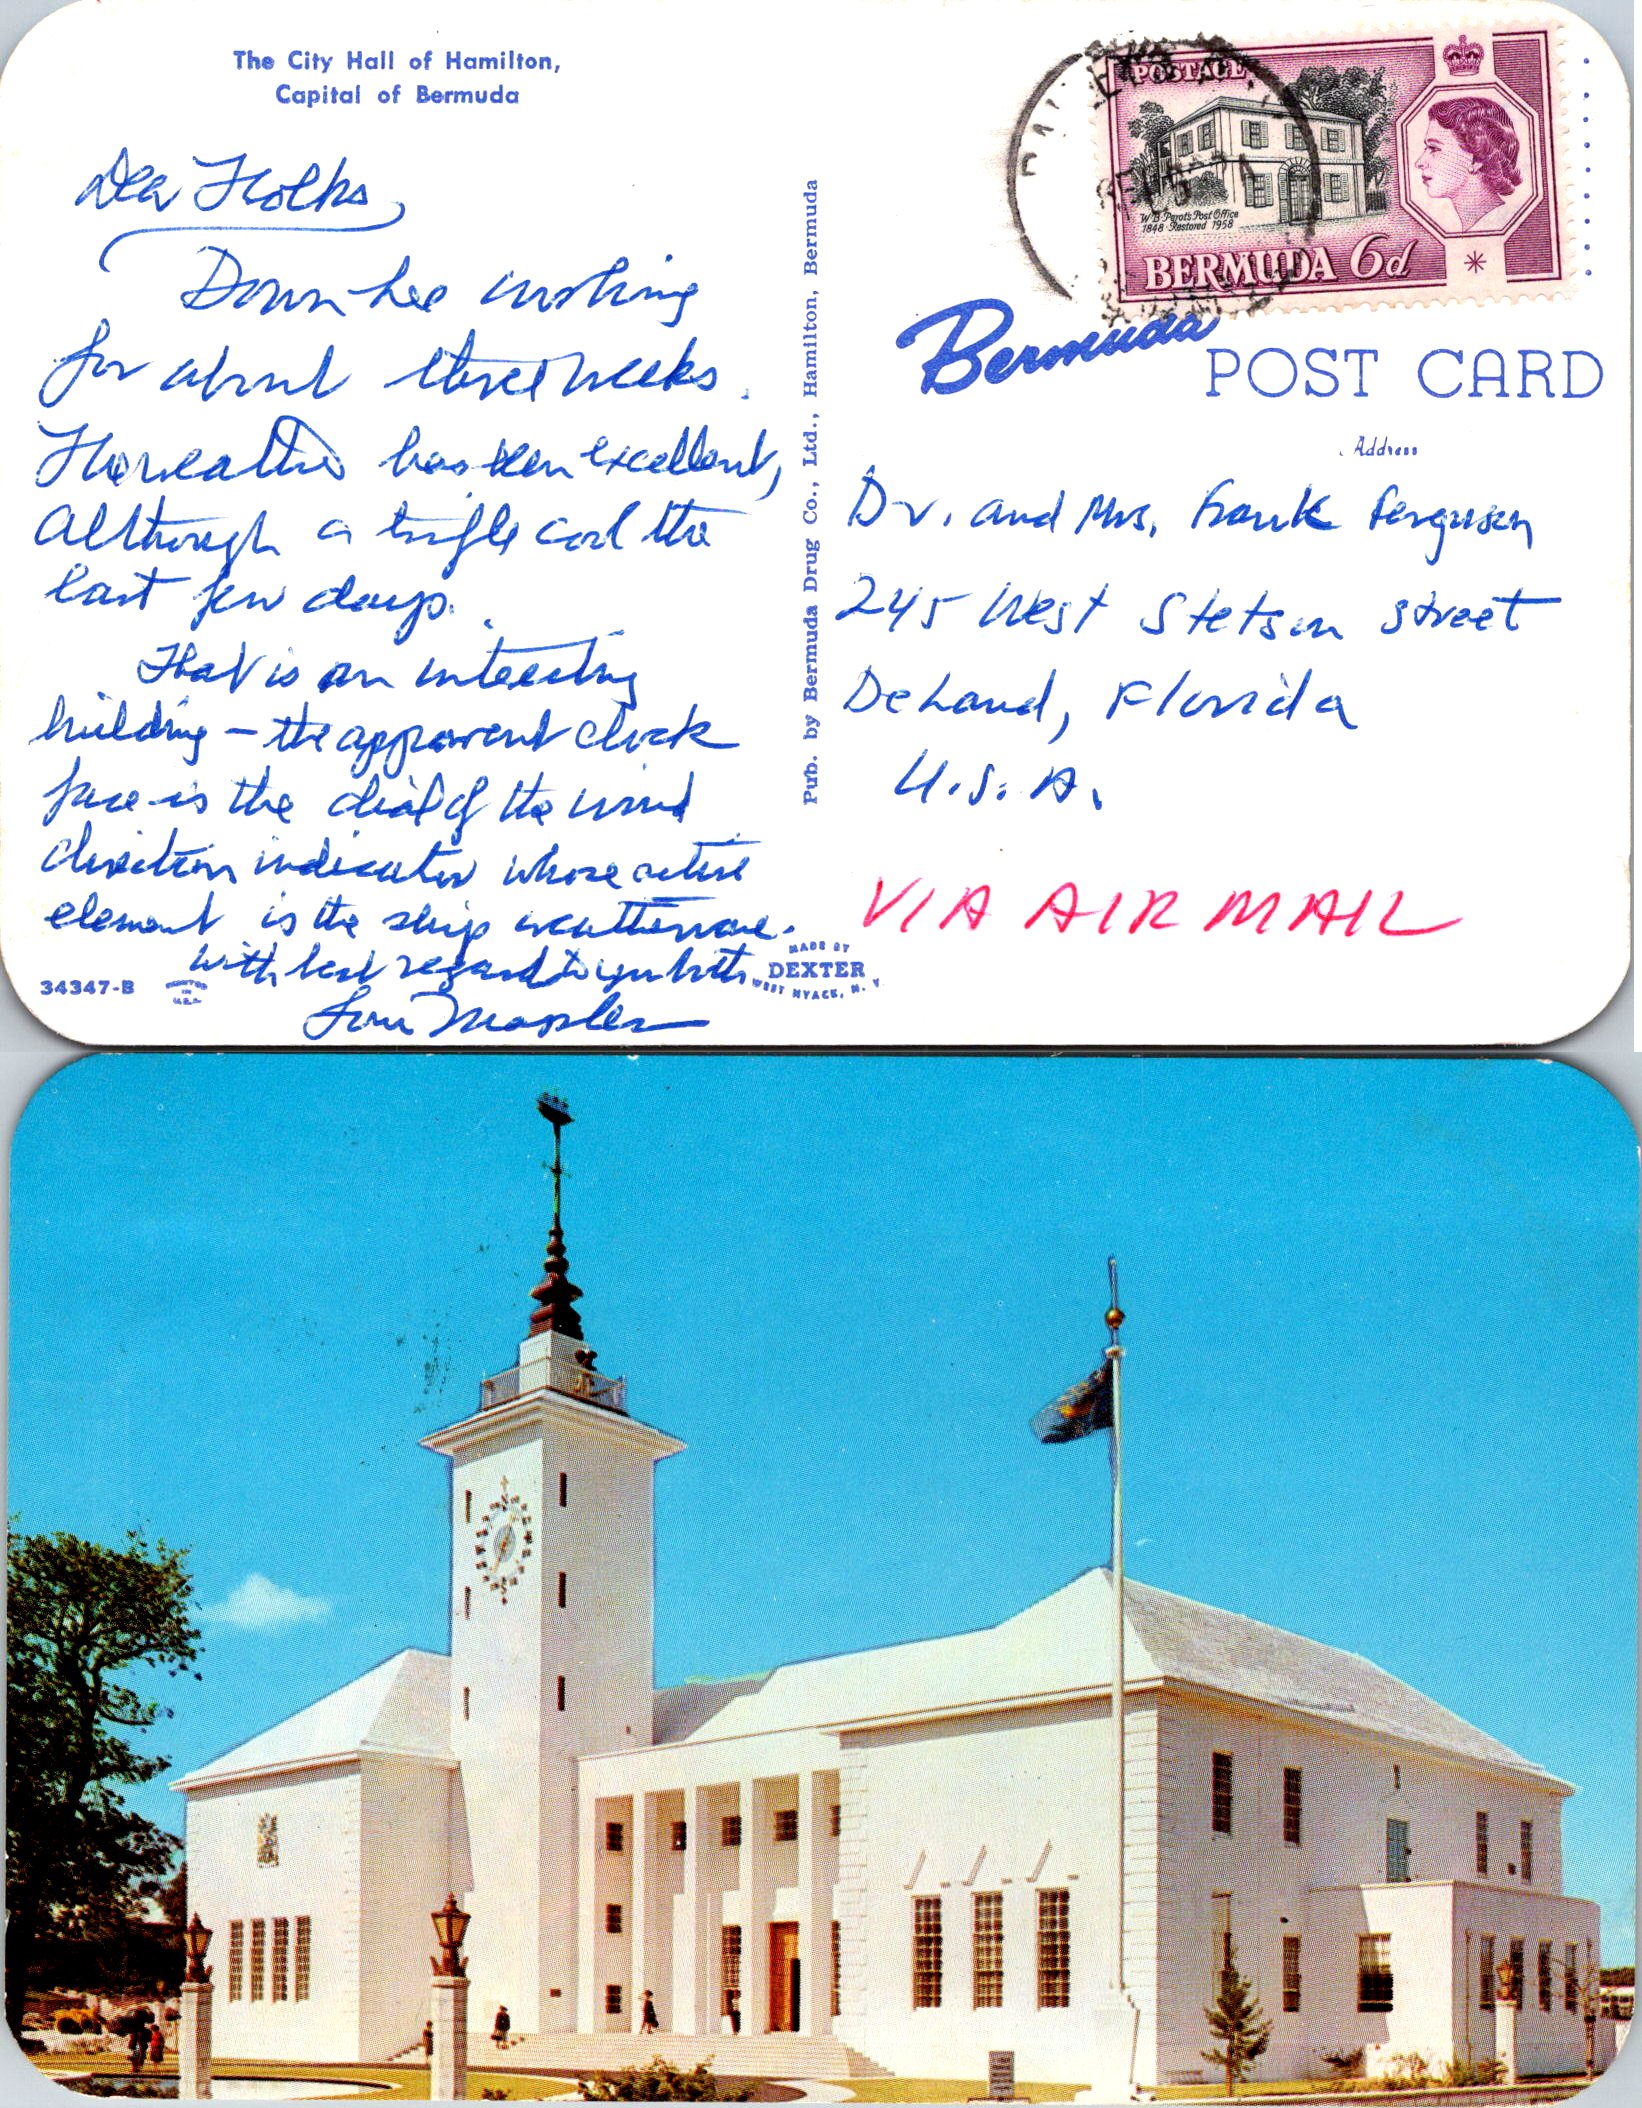 The City Hall of Hamilton,
Capital of Bermuda
Dear Folks,
Down here working
for about three weeks.
The weather has been excellent,
although a trifle cool the
last few days.
That is an interesting
building – the apparent clock
face is the dial of the wind
direction indicator whose active
element is the ship weathervane.
With best regards to you both,
34347-B
MADE BY
DEXTER
WEST NYACK, N. Y.
Pub. by Bermuda Drug Co., Ltd., Hamilton, Bermuda
POSTAGE
W B Perot's Post Office
1848 Restored 1958
BERMUDA 6d
Bermuda
POST CARD
Address
Dr. and Mrs. Frank Ferguson
245 West Stetson Street
DeLand, Florida
U.S.A.
VIA AIR MAIL